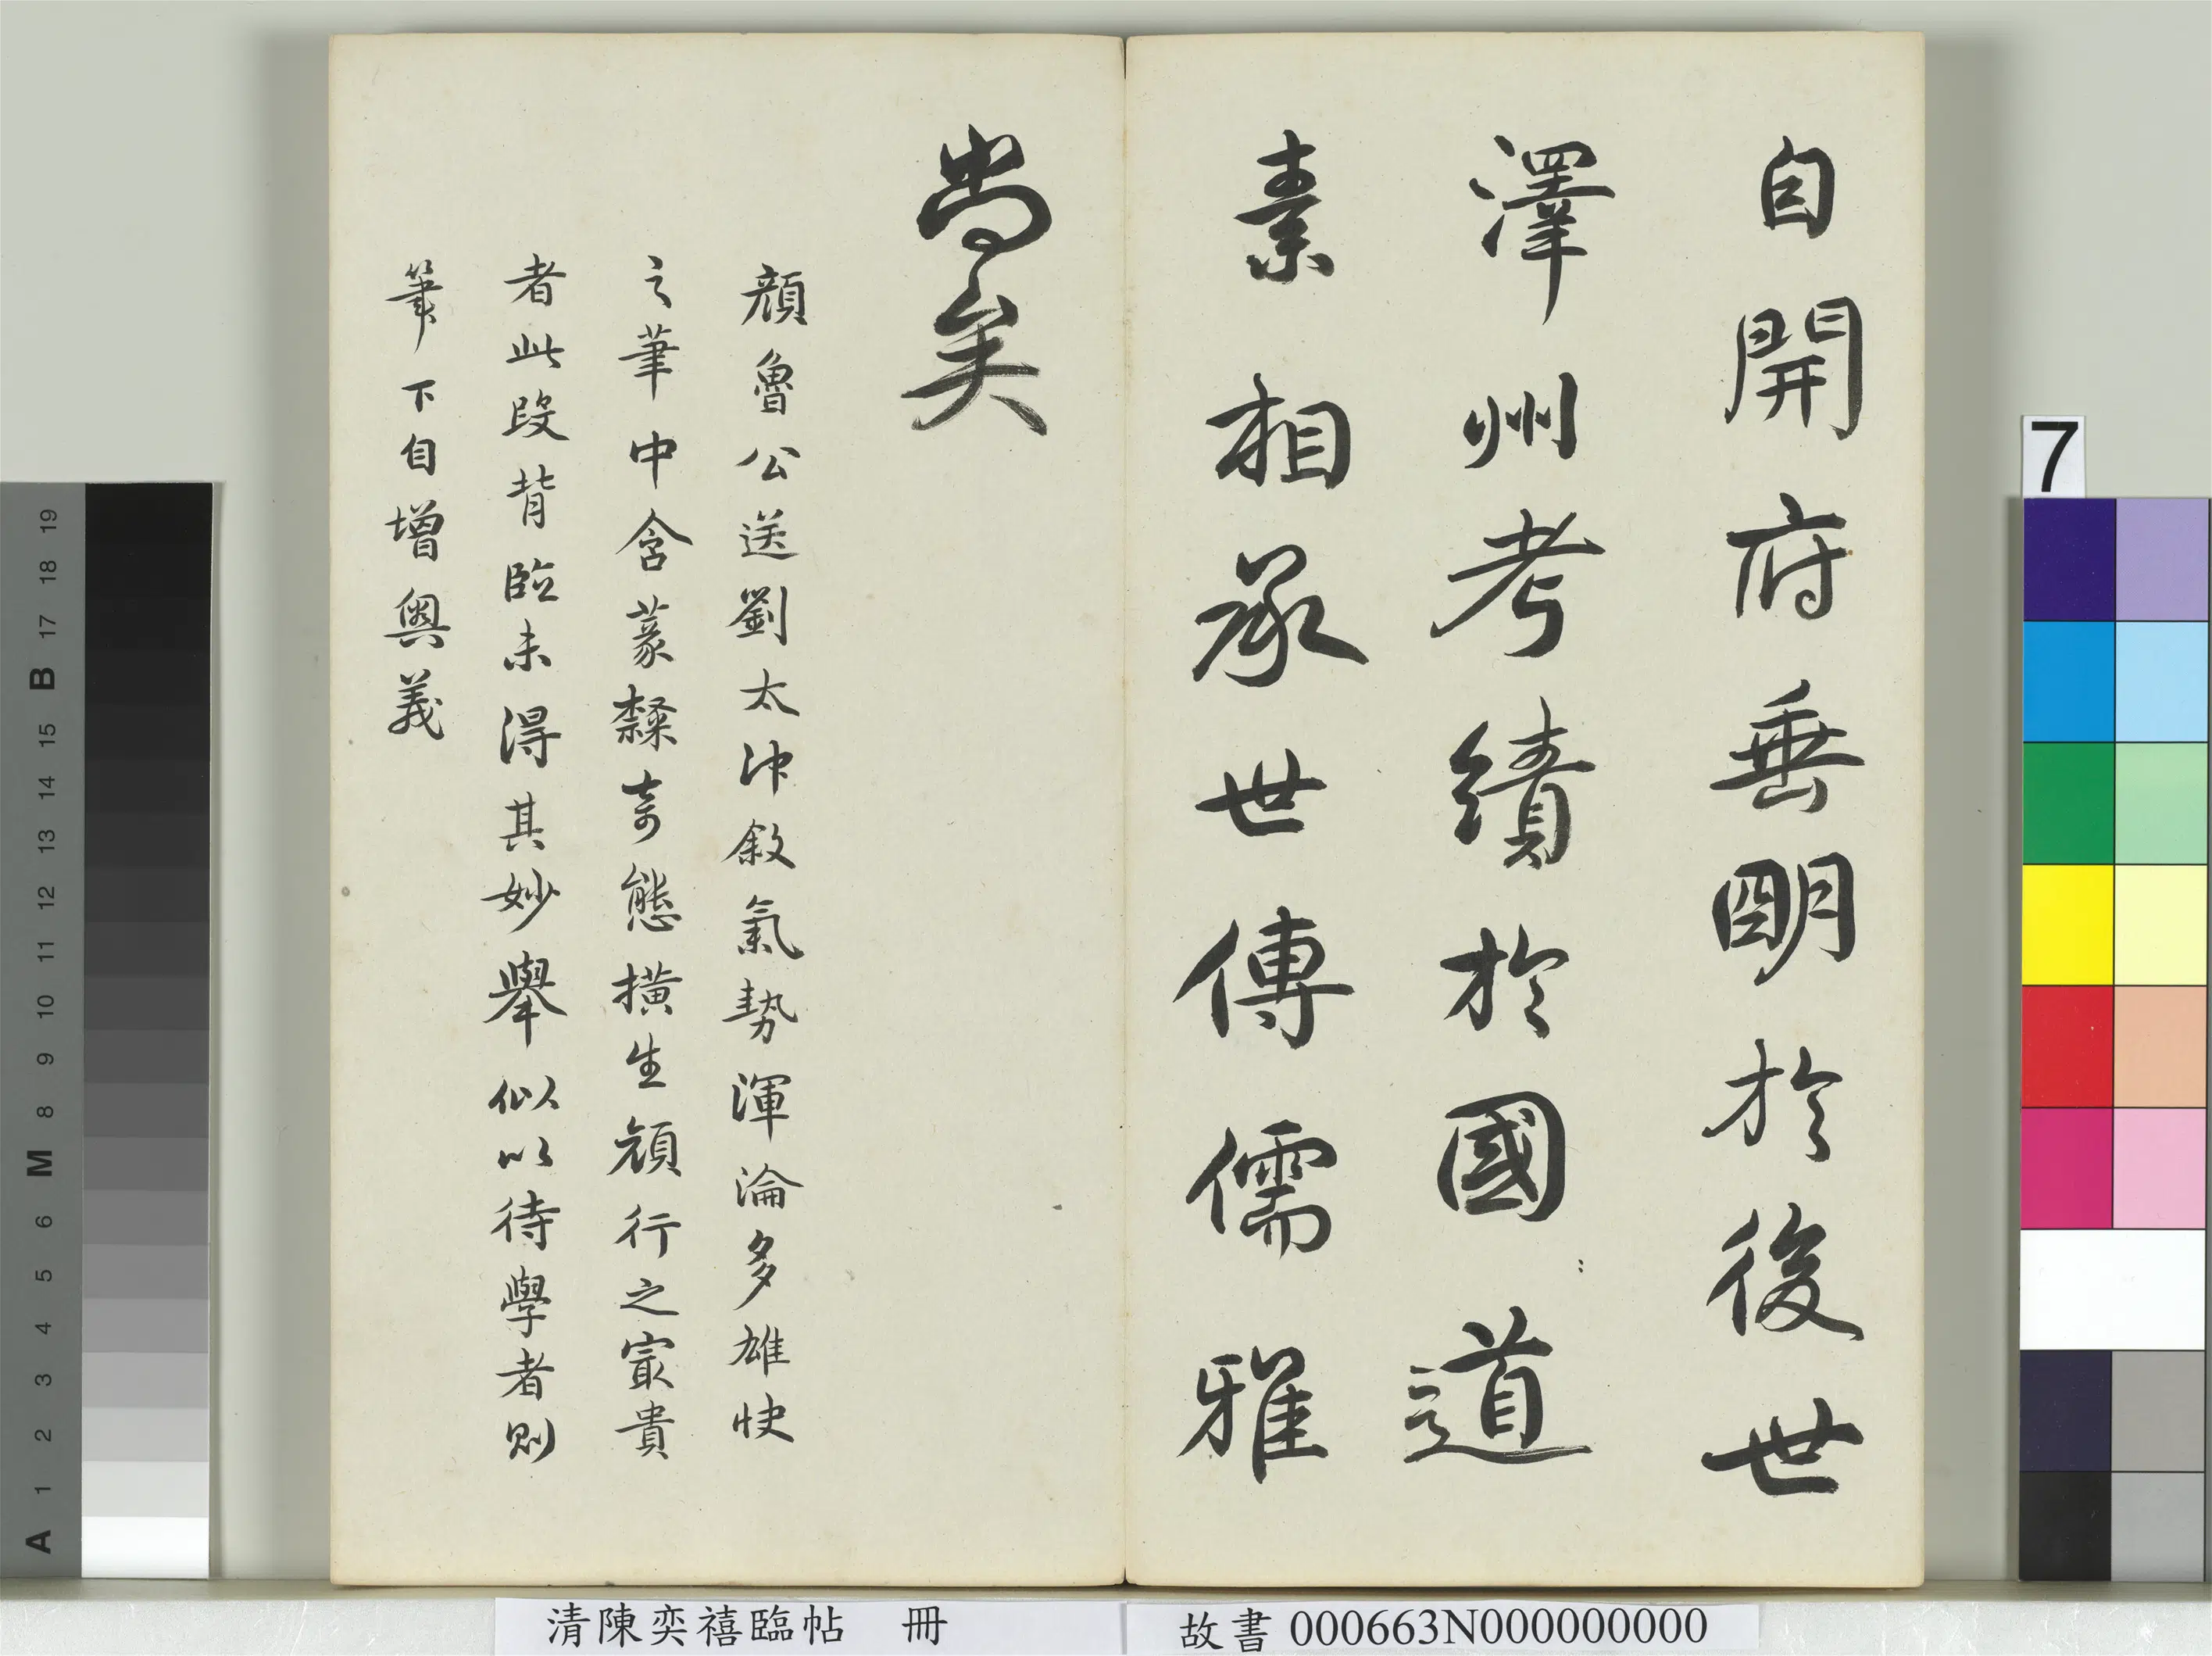 自開府垂明於後世
澤州考績於國道
素相承世傳儒雅
尚矣
顏魯公送劉太沖敘氣勢渾淪多雄快
之筆中含篆隸奇態橫生顏行之冣貴
者此段背臨未得其妙舉似以待學者則
筆下自增奧義
清陳奕禧臨帖 冊
故書 000663N000000000
7
A 1 2 3 4 5 6 M 8 9 10 11 12 13 14 15 B 17 18 19